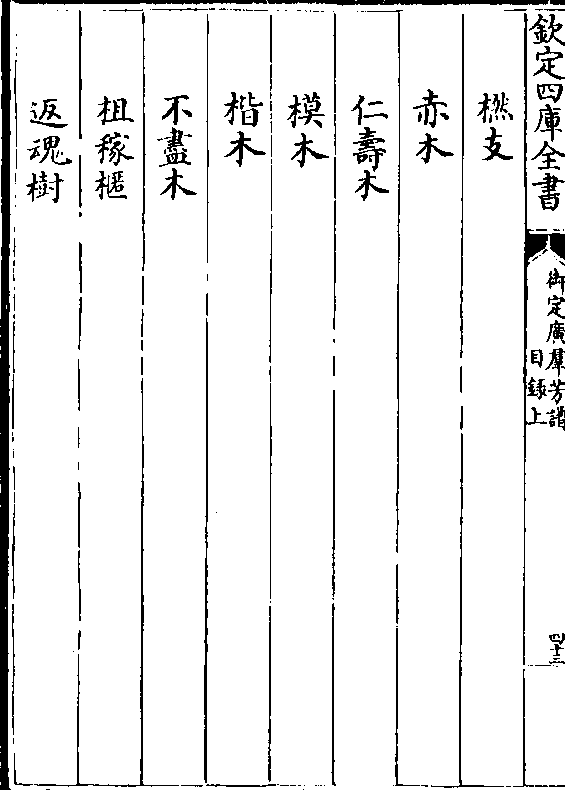 欽定四庫全書
御定廣羣芳譜
目録上
四十三
橪支
赤木
仁壽木
模木
楷木
不盡木
柤稼櫙
返魂樹